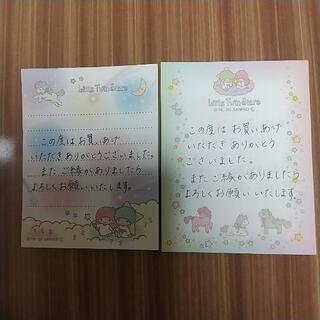 Little Twin Stars
この度は お買いあげ
いただき ありがとうございました。
また ご縁がありましたら
よろしくお願いいたします。
Little Twin Stars
この度は お買いあげ
いただき ありがとう
ございました。
また ご縁がありましたら
よろしくお願いいたします。